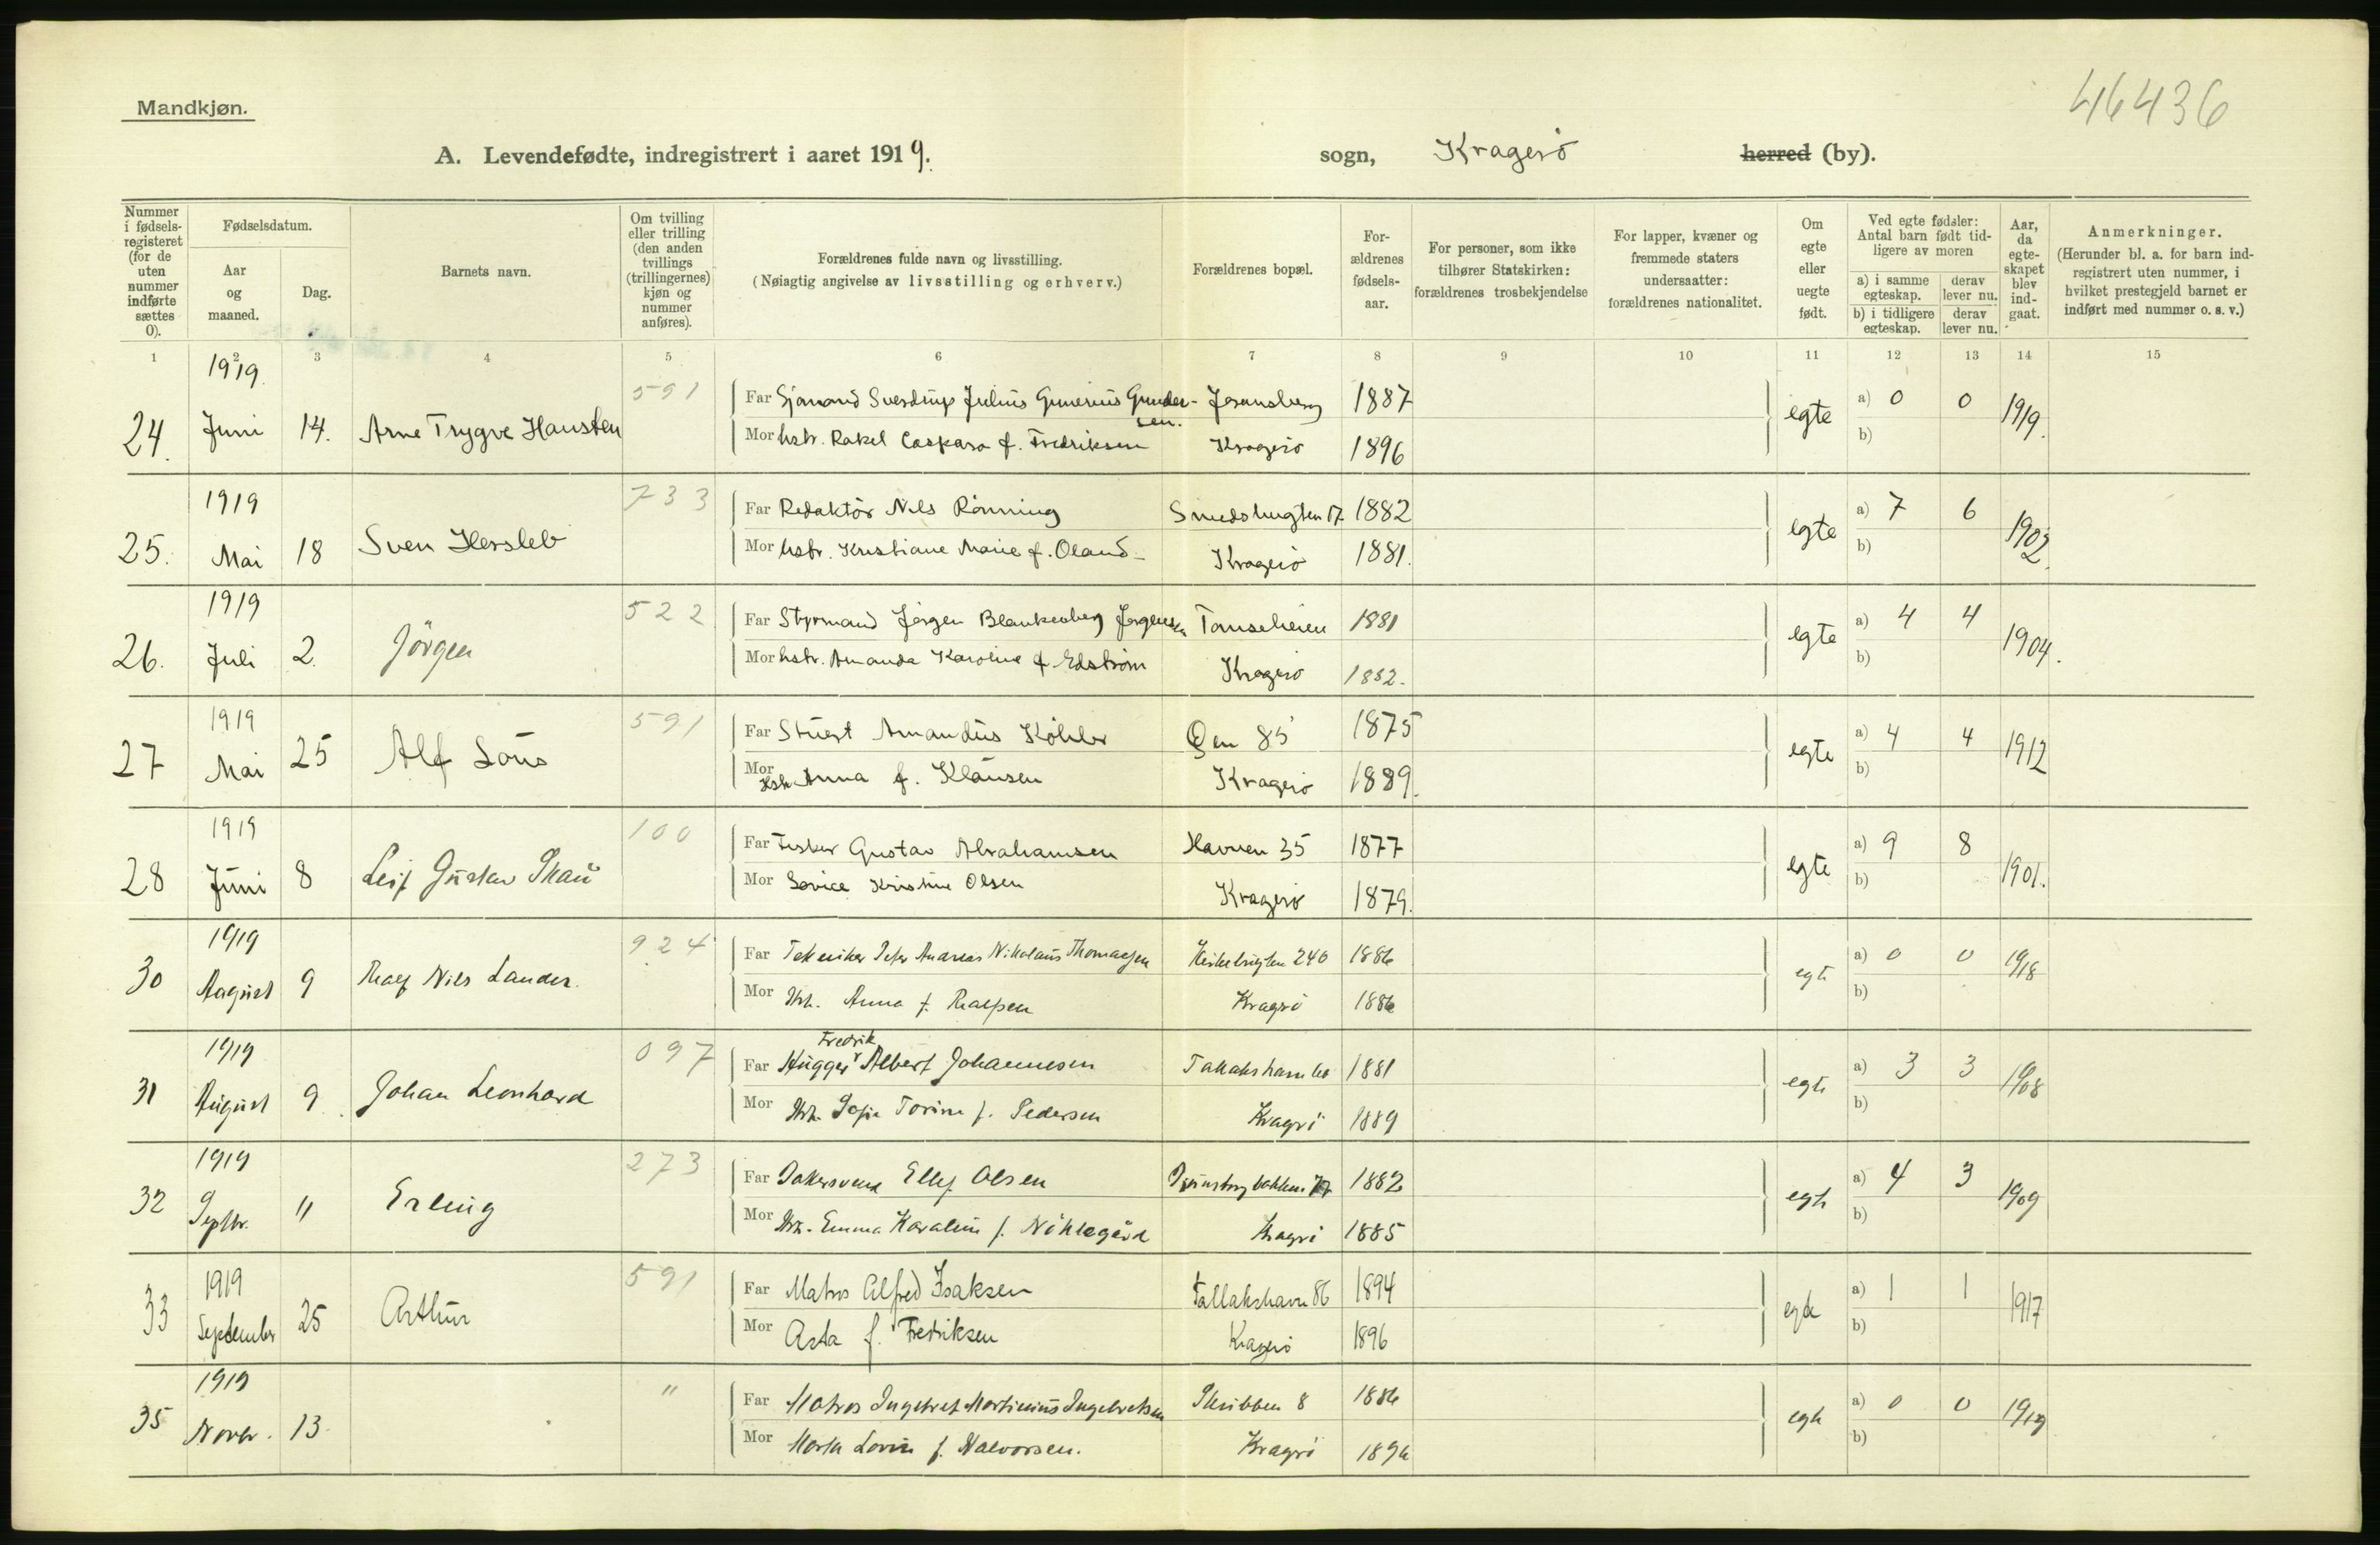 46436
Mandkjøn.
A. Levendefødte, indregistrert i aaret 1919. sogn, Kragerö herred (by).
Nummer i fødsels-registeret (for de uten nummer indførte sættes 0).
Fødselsdatum.
Aar og maaned.
Dag.
Barnets navn.
Om tvilling eller trilling (den anden tvillings (trillingernes) kjøn og nummer anføres).
Forældrenes fulde navn og livsstilling.
(Nøiagtig angivelse av livsstilling og erhverv.)
Forældrenes bopæl.
For-ældrenes fødsels-aar.
For personer, som ikke tilhører Statskirken: forældrenes trosbekjendelse
For lapper, kvæner og fremmede staters undersaatter: forældrenes nationalitet.
Om egte eller uegte født.
Ved egte fødsler: Antal barn født tid-ligere av moren
a) i samme egteskap.
derav lever nu.
b) i tidligere egteskap.
derav lever nu.
Aar, da egte-skapet blev ind-gaat.
Anmerkninger.
(Herunder bl. a. for barn ind-registrert uten nummer, i hvilket prestegjeld barnet er indført med nummer o. s. v.)
1 2 3 4 5 6 7 8 9 10 11 12 13 14 15
1919
591 Far Sjømand Sverdrup Julius Gunerius Gunder- 1887 a) 0 0
24. Juni 14. Arne Trygve Hausten sen. egte 1919.
Mor hstr. Rakel Caspara f. Fredriksen Kragerö 1896 b)
1919
733 Far Redaktör Nils Rönning Smedsbugten 17 1882 a) 7 6
25. Mai 18 Sven Hersleb egte 1902.
Mor hstr. Kristiane Marie f. Öland Kragerö 1881. b)
1919
522 Far Styrmand Jörgen Blankenberg Jörgensen 1881 a) 4 4
26. Juli 2. Jörgen egte 1904.
Mor hstr. Amanda Karoline f. Edström Kragerö 1882. b)
1919
591 Far Stuert Amandus Köhler Öen 85 1875 a) 4 4
27 Mai 25 Alf Lous egte 1912
Mor Hstr Anna f. Klausen Kragerö 1889. b)
1919
100 Far Fisker Gustav Abrahamsen Havnen 35 1877 a) 9 8
28 Juni 8 Leif Gustav Skau egte 1901.
Mor Kristine Olsen Kragerö 1879. b)
1919
924 Far Tekniker Peter Andreas Nikolaus Thomassen Kirkebugten 240 1886 a) 0 0
30 August 9 Nils egte 1918
Mor Hst. Anna f. Kragerö 1886 b)
1919
Fredrik
097 Far Hugger Albert Johannesen 1881 a) 3 3
31 August 9. Johan Leonhard egte 1908
Mor Hst. Sofie Torine f. Pedersen Kragerö 1889 b)
1919
273 Far Bakersvend Ellef Olsen 1882 a) 4 3
32 Septbr. " Erling egte 1909
Mor Hst. Emma Karoline f. Kragerö 1885 b)
1919
591 Far Matros Alfred Isaksen Tallakshavn 86 1894 a) 1 1
33 September 25 Arthur egte 1917
Mor Asta f. Fredriksen Kragerö 1896 b)
1919
" Far Matros Ingebret Martinius Ingebretsen Skrubben 8 1886 a) 0 0
35 Novbr. 13 egte 1919
Mor Marta Lovise f. Halvorsen. Kragerö b)